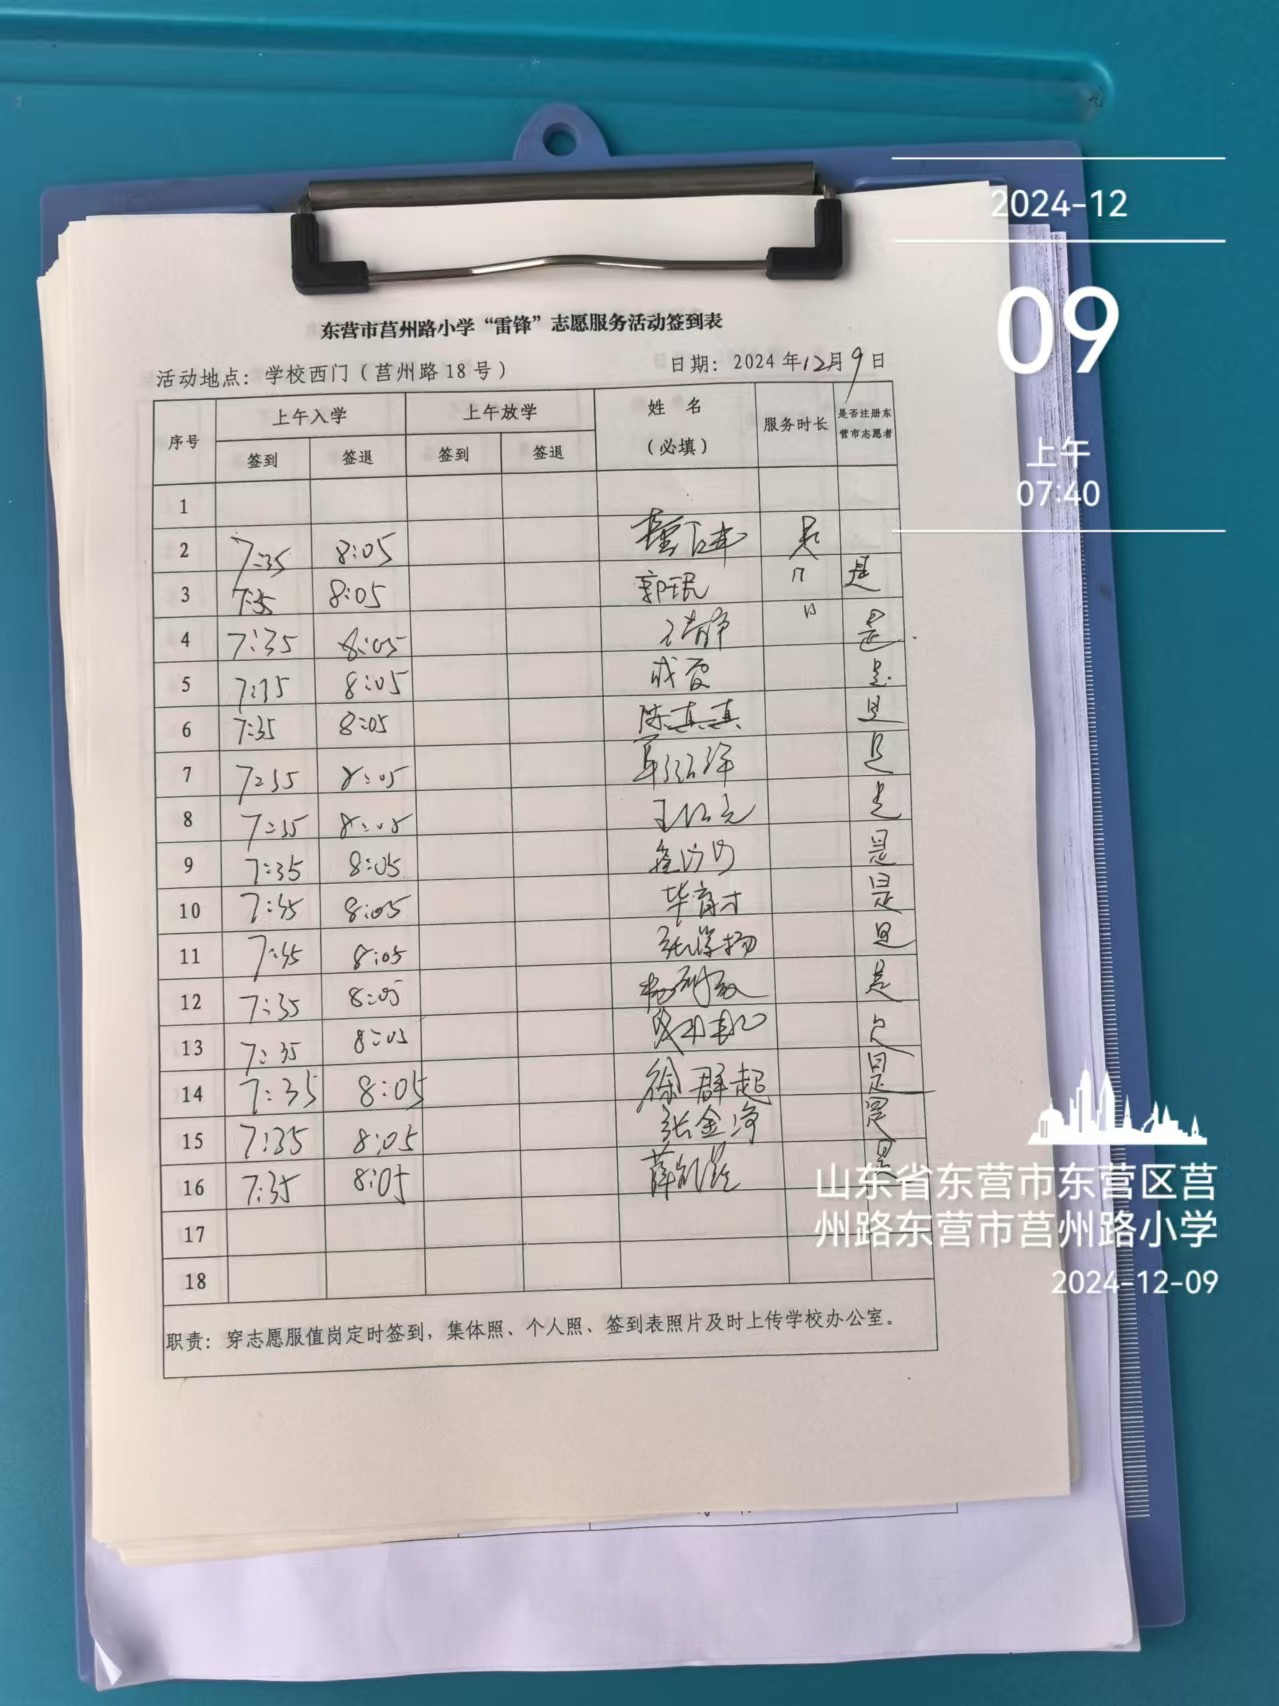 2024-12
09
上午
07:40
东营市莒州路小学“雷锋”志愿服务活动签到表
活动地点：学校西门（莒州路18号） 日期：2024年12月9日
序号 上午入学 上午放学 姓 名 服务时长 是否注册东
签到 签退 签到 签退 （必填） 营市志愿者
1
2 7:35 8:05 是
3 7:35 8:05 郭珉 是
4 7:35 8:05 是
5 7:35 8:05 成霞 是
6 7:35 8:05 陈真真 是
7 7:35 8:05 是
8 7:35 8:05 是
9 7:35 8:05 是
10 7:45 8:05 毕育才 是
11 7:45 8:05 是
12 7:35 8:05 是
13 7:35 8:05
14 7:35 8:05 徐群超 是
15 7:35 8:05 张金净 是
16 7:35 8:05 薛 是
17
18
职责：穿志愿服值岗定时签到，集体照、个人照、签到表照片及时上传学校办公室。
山东省东营市东营区莒
州路东营市莒州路小学
2024-12-09